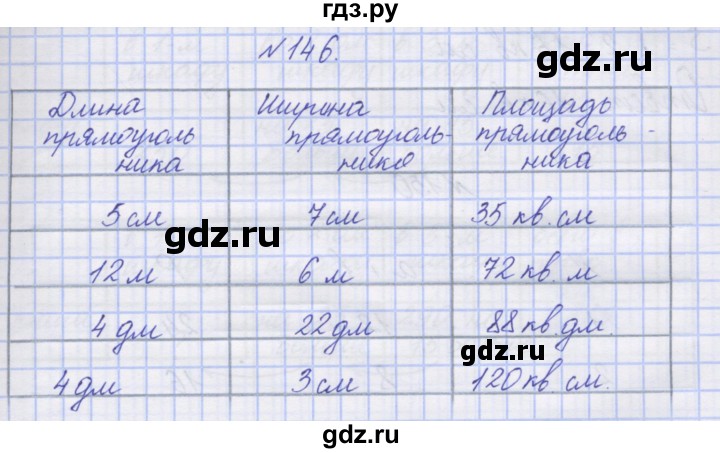 гдз.ру
№146.
Длина Ширина Площадь
прямоуголь прямоуголь- прямоуголь-
ника нико ника
5 см 7 см 35 кв. см
gdz.ru
12 м 6 м 72 кв. м
4 дм 22 дм 88 кв. дм.
gdz.ru
4 дм 3 см 120 кв. см.
gdz.ru